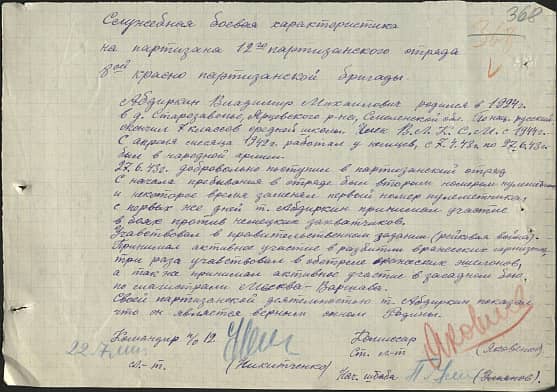 368
368
Служебная боевая характеристика
на партизана 12го партизанского отряда
3ей краснопартизанской бригады.
Абдиркин Владимир Михайлович родился в 1924г.
в д. Старозавопье, Ярцевского р-на, Смоленской обл. По нац. русский
окончил 7 классов средней школы. Член В.Л.К.С.М. с 1941г.
С апреля месяца 1942г. работал у немцев, с 7.4.43г. по 27.6.43г.
был в народной армии.
27.6.43г. добровольно поступил в партизанский отряд
С начала пребывания в отряде был вторым номером пулемётчика
и некоторое время заменял первый номер пулемётчика,
с первых же дней т. Абдиркин принимал участие
в боях против немецких захватчиков.
Учавствовал в правительственном задании (рельсовая война).
Принимал активное участие в разбитии вражеских гарнизонов,
три раза учавствовал в обстреле вражеских эшелонов,
а так же принимал активное участие в засадном бою,
по магистрали Москва-Варшава.
Своей партизанской деятельностью т. Абдиркин показал,
что он является верным сыном Родины.
Командир п/о 12 Комиссар
л-т. (Никитченко) Ст. л-т (Яковенко)
Нач. штаба